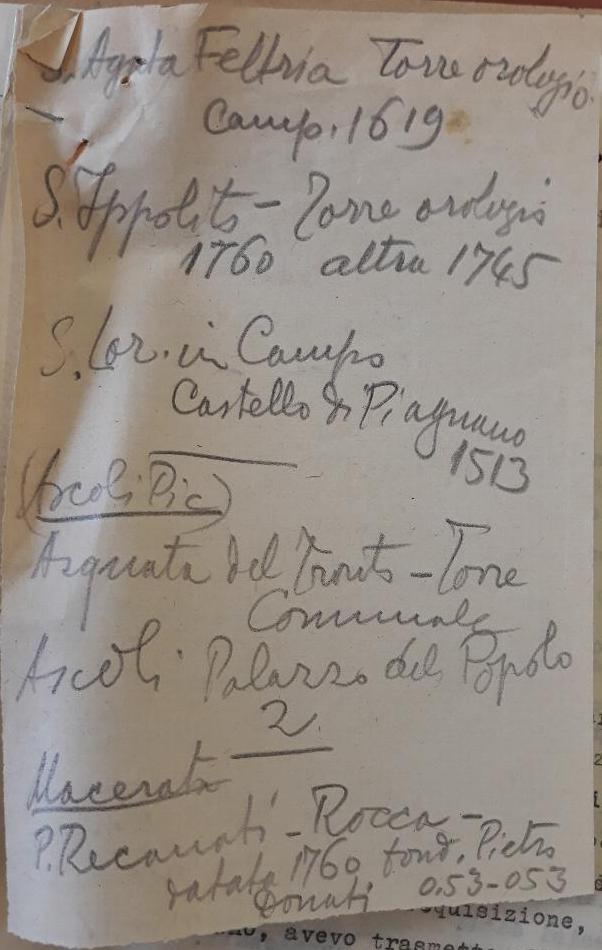 S. Agata Feltria Torre orologio
Camp. 1619
S. Ippolito - Torre orologio
1760 altra 1745
S. Lor. in Campo
Castello di Piagnano
1513
(Ascoli Pic)
Arquata del Tronto - Torre
Comunale
Ascoli Palazzo del Popolo
2
Macerata
P. Recanati - Rocca -
datata 1760 fond. Pietro
Donati 0.53-053
quisizione,
avevo trasmett